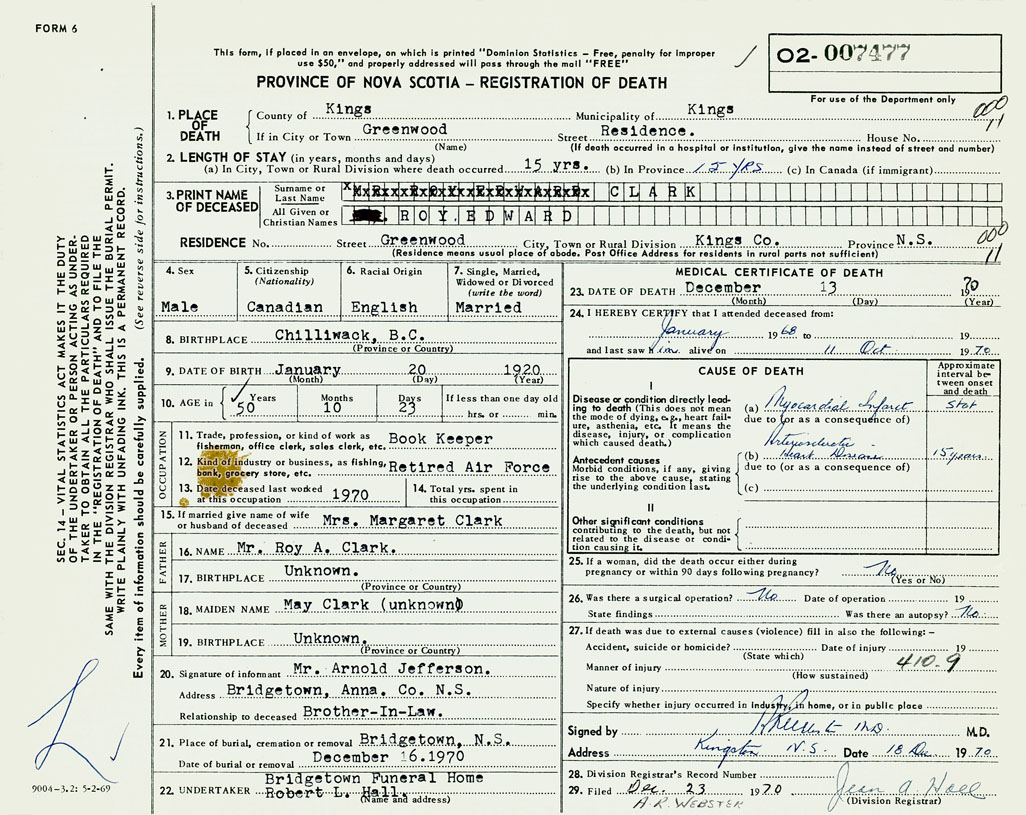 FORM 6
This form, if placed in an envelope, on which is printed "Dominion Statistics – Free, penalty for improper
use $50," and properly addressed will pass through the mail "FREE"
PROVINCE OF NOVA SCOTIA – REGISTRATION OF DEATH
O2- 007477
For use of the Department only
SEC. 14 – VITAL STATISTICS ACT MAKES IT THE DUTY
OF THE UNDERTAKER OR PERSON ACTING AS UNDER-
TAKER TO OBTAIN ALL THE PARTICULARS REQUIRED
IN THE "REGISTRATION OF DEATH" AND TO FILE THE
SAME WITH THE DIVISION REGISTRAR WHO SHALL ISSUE THE BURIAL PERMIT.
WRITE PLAINLY WITH UNFADING INK. THIS IS A PERMANENT RECORD.
Every item of information should be carefully supplied. (See reverse side for instructions.)
1. PLACE OF DEATH
County of Kings Municipality of Kings
000
11
If in City or Town Greenwood Street Residence. House No.
(Name) (If death occurred in a hospital or institution, give the name instead of street and number)
2. LENGTH OF STAY (in years, months and days)
(a) In City, Town or Rural Division where death occurred 15 yrs. (b) In Province 15 YRS (c) In Canada (if immigrant)
3. PRINT NAME OF DECEASED
Surname or Last Name CLARK
All Given or Christian Names ROY.EDWARD
RESIDENCE No. Street Greenwood City, Town or Rural Division Kings Co. Province N.S.
000
11
(Residence means usual place of abode. Post Office Address for residents in rural parts not sufficient)
4. Sex
Male
5. Citizenship
(Nationality)
Canadian
6. Racial Origin
English
7. Single, Married,
Widowed or Divorced
(write the word)
Married
8. BIRTHPLACE Chilliwack, B.C.
(Province or Country)
9. DATE OF BIRTH January 20 1920
(Month) (Day) (Year)
10. AGE in Years 50 Months 10 Days 23 If less than one day old
hrs. or min.
OCCUPATION
11. Trade, profession, or kind of work as Book Keeper
fisherman, office clerk, sales clerk, etc.
12. Kind of industry or business, as fishing, Retired Air Force
bank, grocery store, etc.
13. Date deceased last worked 1970
at this occupation
14. Total yrs. spent in
this occupation
15. If married give name of wife
or husband of deceased Mrs. Margaret Clark
FATHER
16. NAME Mr. Roy A. Clark.
17. BIRTHPLACE Unknown.
(Province or Country)
MOTHER
18. MAIDEN NAME May Clark (unknown)
19. BIRTHPLACE Unknown.
(Province or Country)
20. Signature of informant Mr. Arnold Jefferson.
Address Bridgetown, Anna. Co. N.S.
Relationship to deceased Brother-In-Law.
21. Place of burial, cremation or removal Bridgetown, N.S.
Date of burial or removal December 16.1970
Bridgetown Funeral Home
22. UNDERTAKER Robert L. Hall.
(Name and address)
9004-3.2: 5-2-69
MEDICAL CERTIFICATE OF DEATH
23. DATE OF DEATH December 13 1970
(Month) (Day) (Year)
24. I HEREBY CERTIFY that I attended deceased from:
January 1968 to 19
and last saw him alive on 11 Oct. 1970
CAUSE OF DEATH
Approximate
interval be-
tween onset
and death
I
Disease or condition directly lead-
ing to death (This does not mean
the mode of dying, e.g., heart fail-
ure, asthenia, etc. It means the
disease, injury, or complication
which caused death.)
(a) Myocardial Infarct stat
due to (or as a consequence of)
Arteriosclerotic
Antecedent causes
Morbid conditions, if any, giving
rise to the above cause, stating
the underlying condition last.
(b) Heart Disease 15 years
due to (or as a consequence of)
(c)
II
Other significant conditions
contributing to the death, but not
related to the disease or condi-
tion causing it.
25. If a woman, did the death occur either during
pregnancy or within 90 days following pregnancy? No
(Yes or No)
26. Was there a surgical operation? No Date of operation 19
State findings Was there an autopsy? No.
27. If death was due to external causes (violence) fill in also the following: –
Accident, suicide or homicide? Date of injury 19
(State which)
410.9
Manner of injury
(How sustained)
Nature of injury
Specify whether injury occurred in industry, in home, or in public place
Signed by M.D. M.D.
Address Kingston N.S. Date 18 Dec 1970
28. Division Registrar's Record Number
29. Filed Dec. 23 1970 Jean A. Hall
A.R. WEBSTER (Division Registrar)